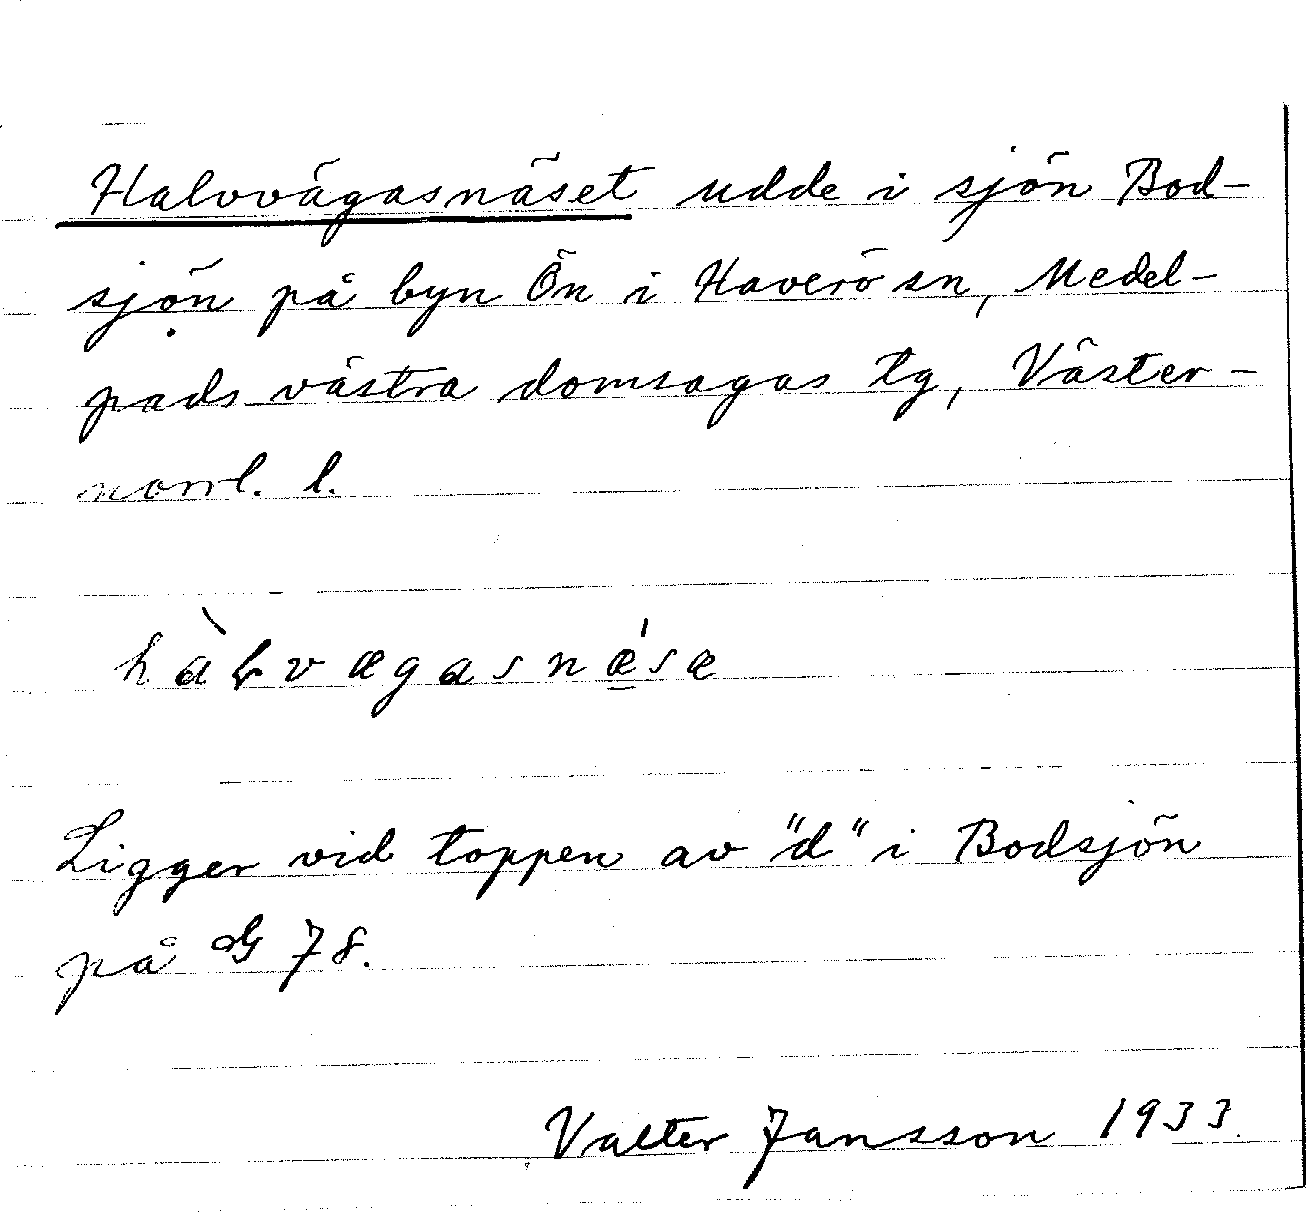 Halvvägasnäset udde i sjön Bod-
sjön på byn Ön i Haverö sn, Medel-
pads västra domsagas tg, Väster-
norrl. l.
hàɫvægasnǽsæ
Ligger vid toppen av "d" i Bodsjön
på G 78.
Valter Jansson 1933.